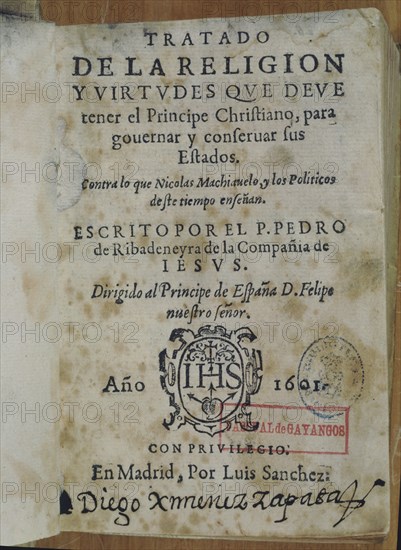 TRATADO
DE LA RELIGION
Y VIRTVDES QVE DEVE
tener el Principe Christiano, para
gouernar y conseruar sus
Estados.
Contra lo que Nicolas Machiauelo, y los Politicos
deste tiempo enseñan.
ESCRITO POR EL P. PEDRO
de Ribadeneyra de la Compañia de
IESVS.
Dirigido al Principe de España D. Felipe
nuestro señor.
IHS
Año 1601.
DE GAYANGOS
CON PRIVILEGIO.
En Madrid, Por Luis Sanchez:
Diego Ximenez Zapata
PHOTO 12